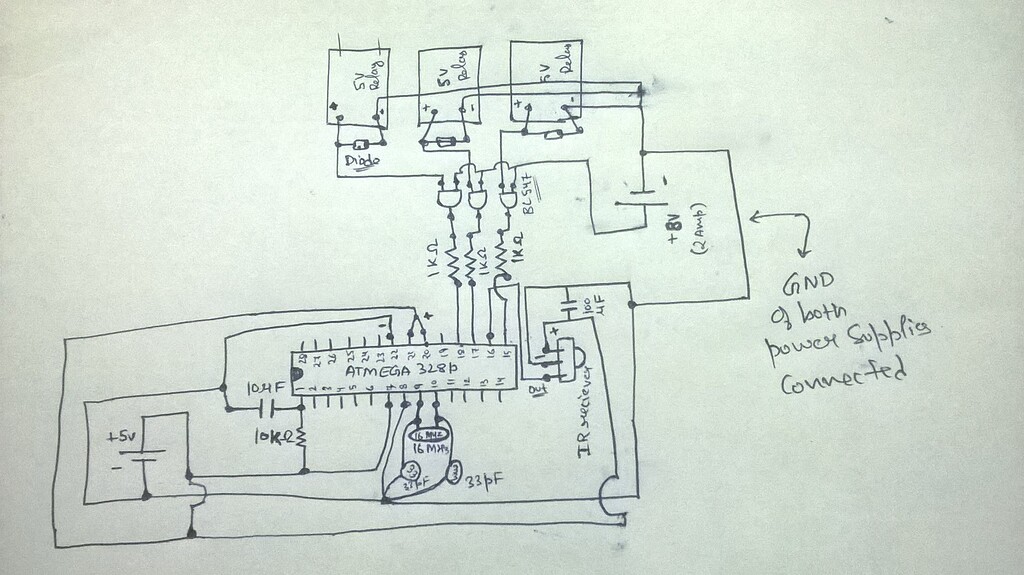 5V
Relay
5V
Relay
5V
Relay
+
-
+
-
+
-
Diode
BC547
1KΩ
1KΩ
1KΩ
-
+8V
(2Amp)
GND
of both
power supplies
connected
100
µF
+
-
+
-
Out
IR reciever
28 27 26 25 24 23 22 21 20 19 18 17 16 15
ATMEGA 328p
1 2 3 4 5 6 7 8 9 10 11 12 13 14
10µF
10KΩ
+5v
-
16 MHz
16 MHz
33pF
33pF